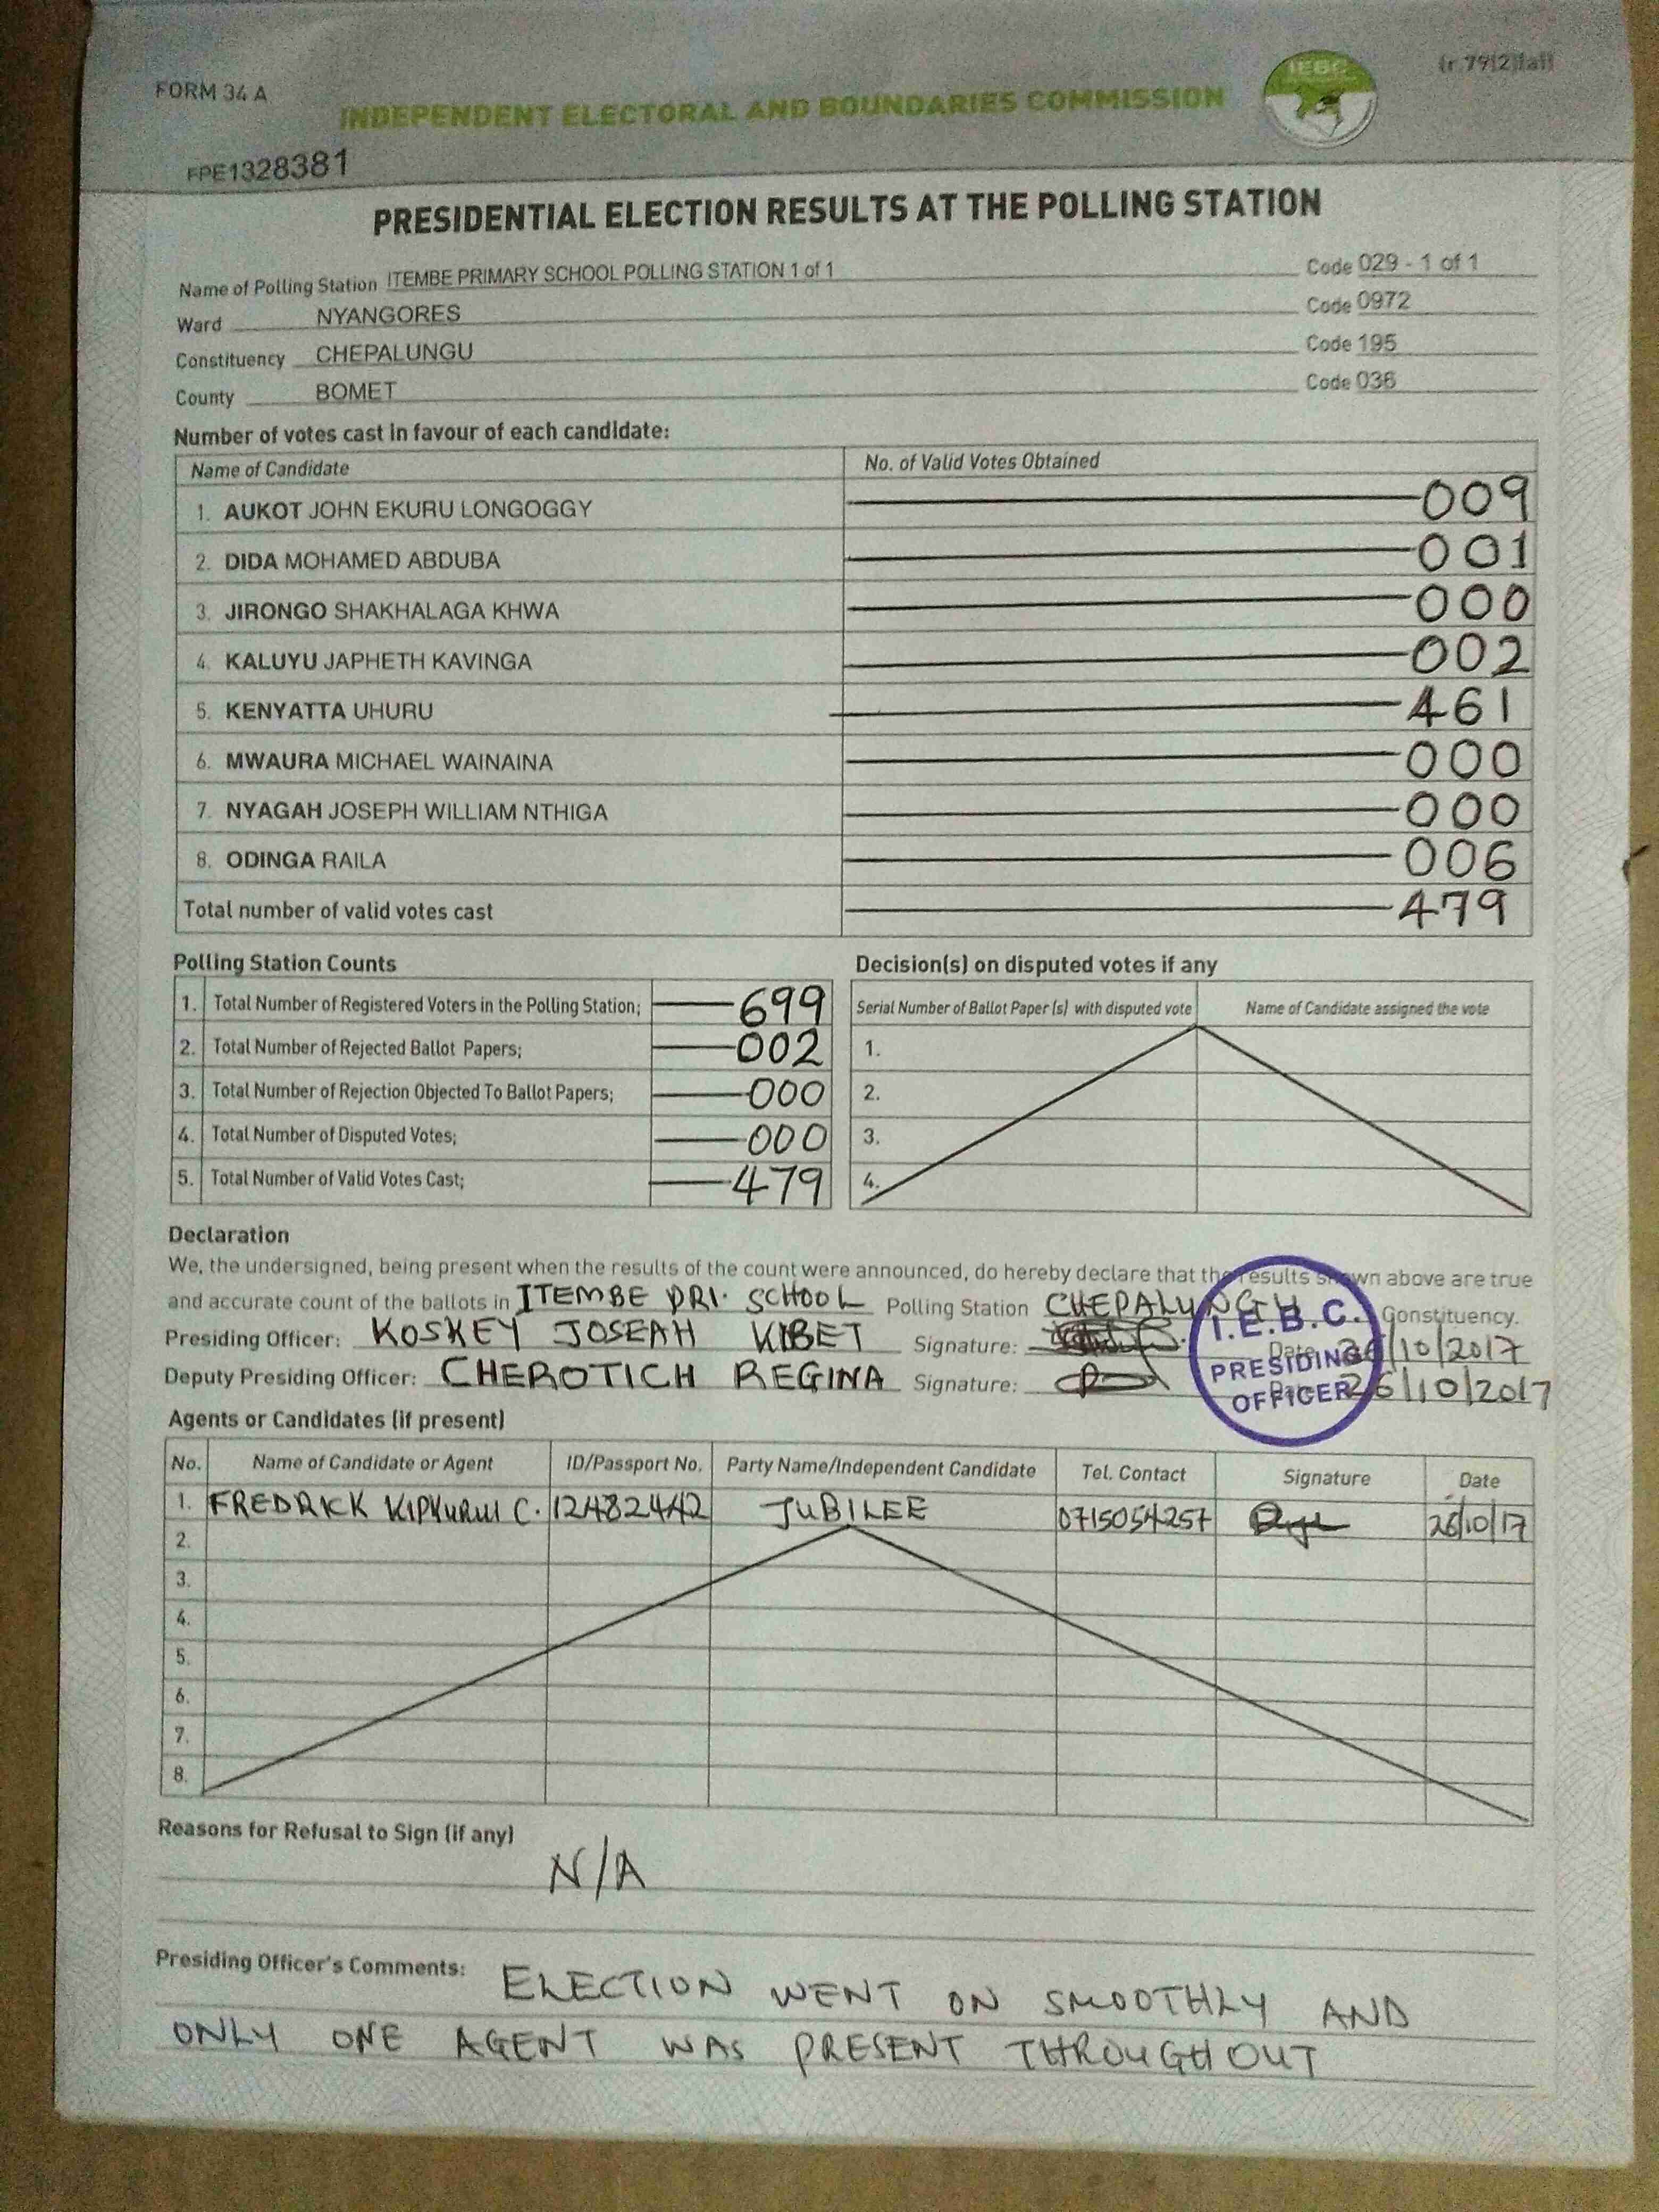 (r.79(2)(a))
FORM 34 A
IEBC
INDEPENDENT ELECTORAL AND BOUNDARIES COMMISSION
FPE1328381
PRESIDENTIAL ELECTION RESULTS AT THE POLLING STATION
Name of Polling Station ITEMBE PRIMARY SCHOOL POLLING STATION 1 of 1 Code 029 - 1 of 1
Ward NYANGORES Code 0972
Constituency CHEPALUNGU Code 195
County BOMET Code 036
Number of votes cast in favour of each candidate:
Name of Candidate No. of Valid Votes Obtained
1. AUKOT JOHN EKURU LONGOGGY 009
2. DIDA MOHAMED ABDUBA 001
3. JIRONGO SHAKHALAGA KHWA 000
4. KALUYU JAPHETH KAVINGA 002
5. KENYATTA UHURU 461
6. MWAURA MICHAEL WAINAINA 000
7. NYAGAH JOSEPH WILLIAM NTHIGA 000
8. ODINGA RAILA 006
Total number of valid votes cast 479
Polling Station Counts
1. Total Number of Registered Voters in the Polling Station; 699
2. Total Number of Rejected Ballot Papers; 002
3. Total Number of Rejection Objected To Ballot Papers; 000
4. Total Number of Disputed Votes; 000
5. Total Number of Valid Votes Cast; 479
Decision(s) on disputed votes if any
Serial Number of Ballot Paper (s) with disputed vote Name of Candidate assigned the vote
1.
2.
3.
4.
Declaration
We, the undersigned, being present when the results of the count were announced, do hereby declare that the results shown above are true
and accurate count of the ballots in ITEMBE PRI. SCHOOL Polling Station CHEPALUNGU Constituency.
Presiding Officer: KOSKEY JOSEAH KIBET Signature: Date 26/10/2017
Deputy Presiding Officer: CHEROTICH REGINA Signature: Date 26/10/2017
I.E.B.C.
PRESIDING
OFFICER
Agents or Candidates (if present)
No. Name of Candidate or Agent ID/Passport No. Party Name/Independent Candidate Tel. Contact Signature Date
1. FREDRICK KIPKURUI C. 12482442 JUBILEE 0715054257 26/10/17
2.
3.
4.
5.
6.
7.
8.
Reasons for Refusal to Sign (if any)
N/A
Presiding Officer's Comments: ELECTION WENT ON SMOOTHLY AND
ONLY ONE AGENT WAS PRESENT THROUGHOUT